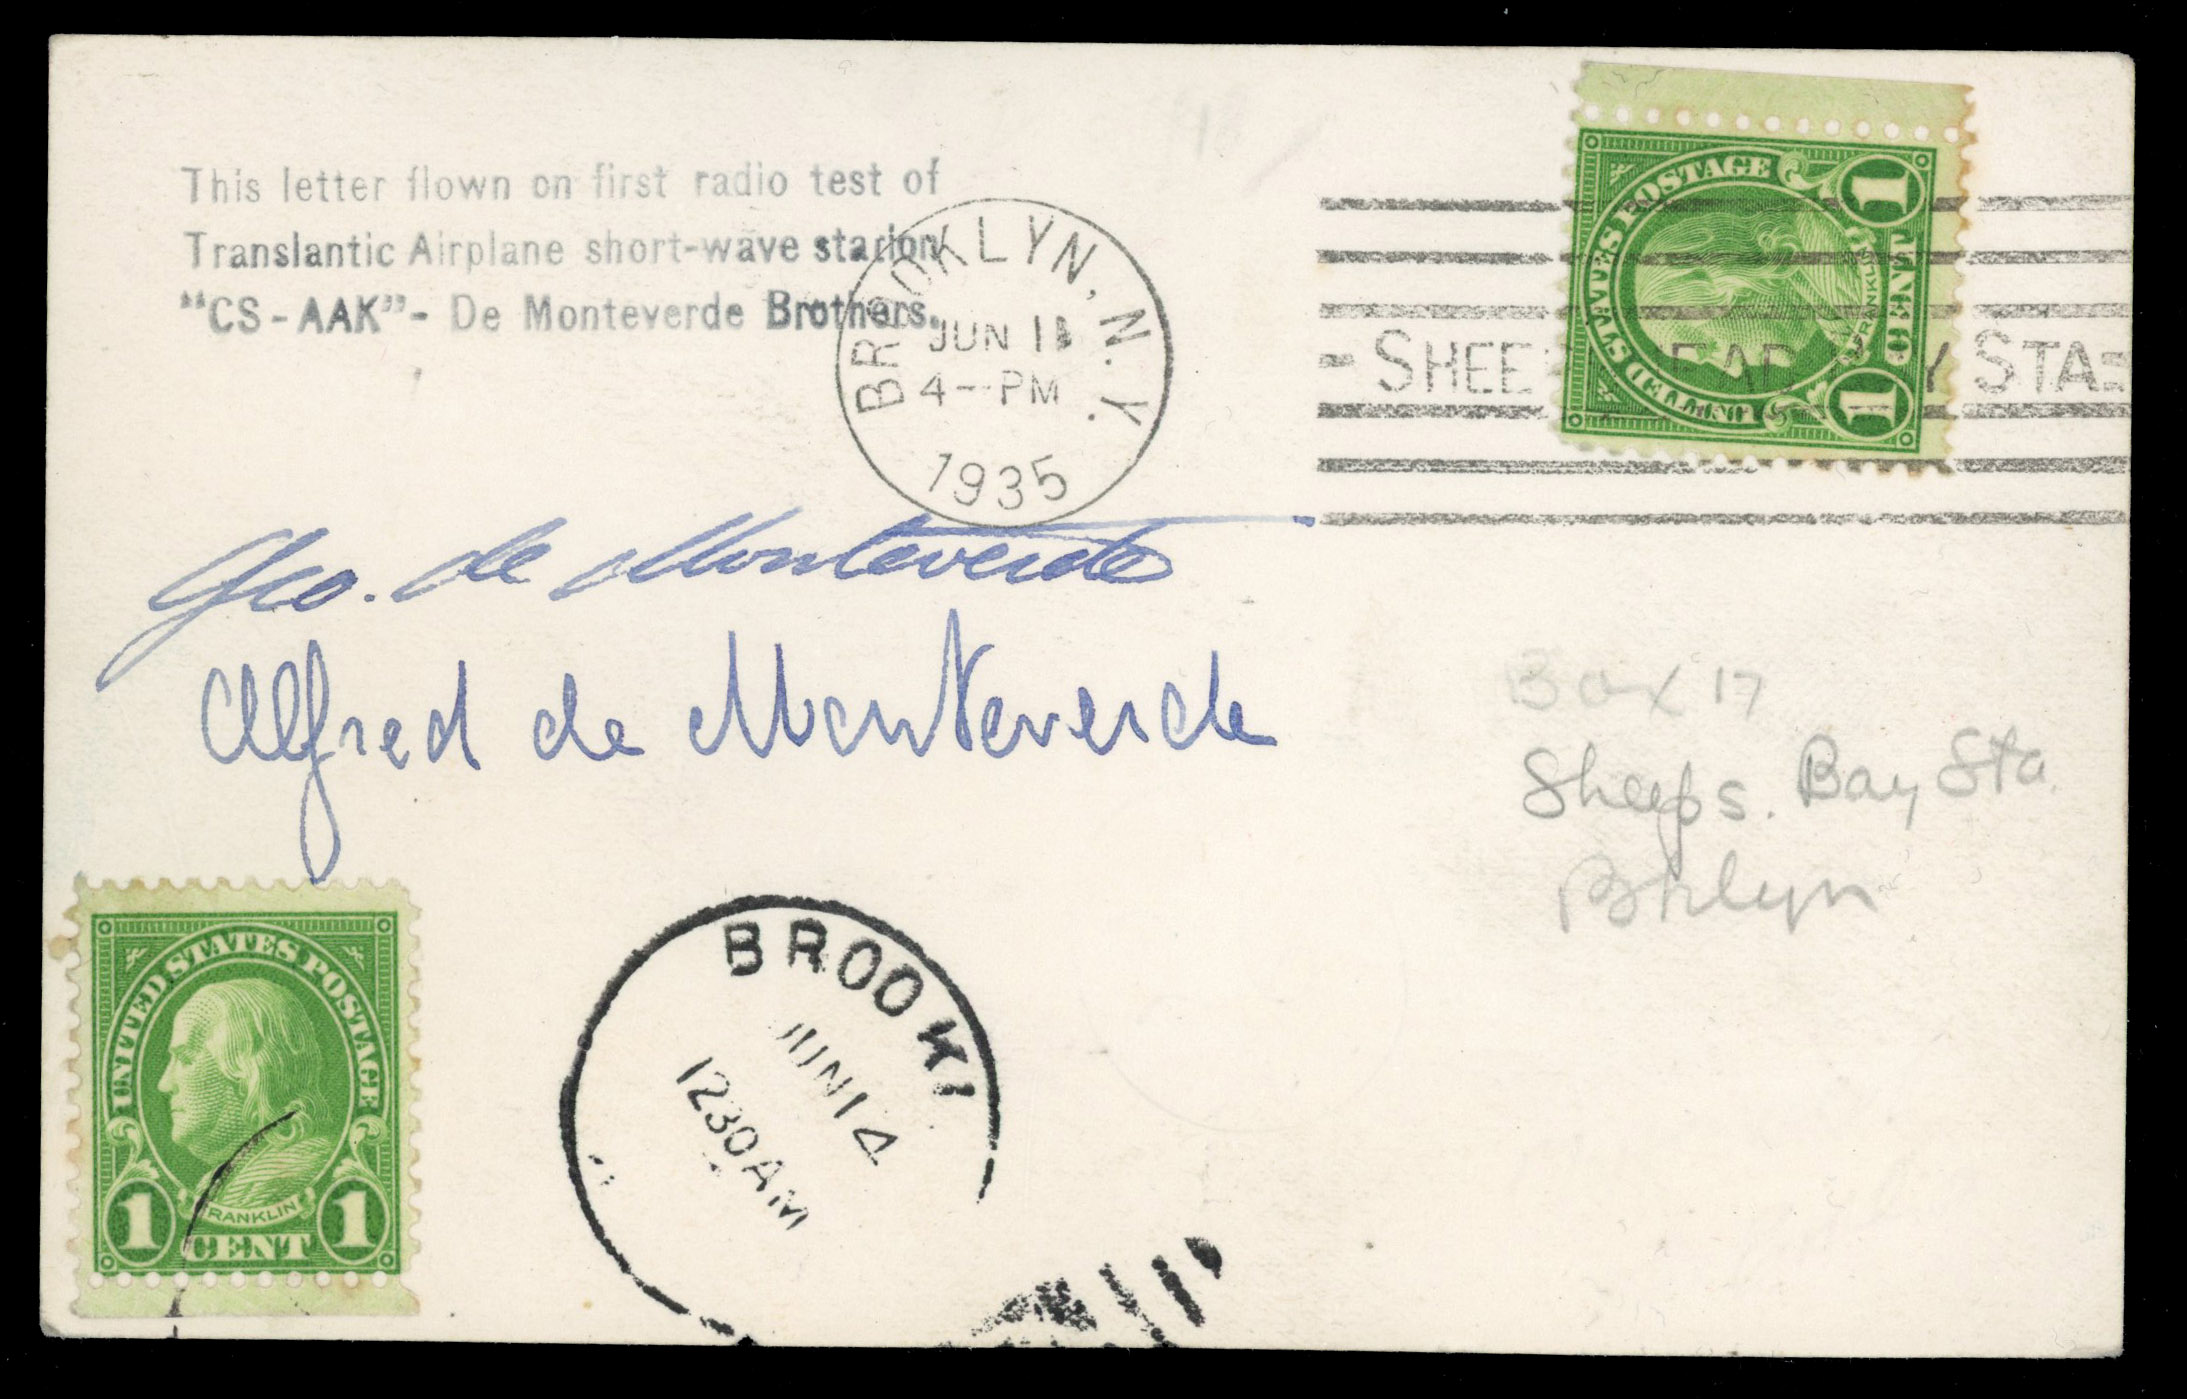 This letter flown on first radio test of
Translantic Airplane short-wave station
"CS-AAK"- De Monteverde Brothers.
BROOKLYN, N.Y.
JUN 11
4-PM
1935
SHEE EAD Y STA
UNITED STATES POSTAGE
FRANKLIN
1 ONE CENT 1
Geo. de Monteverde
Alfred de Monteverde
Box 17
Sheeps. Bay Sta.
Bklyn
UNITED STATES POSTAGE
FRANKLIN
1 CENT 1
BROOKL
JUN 14
1230AM